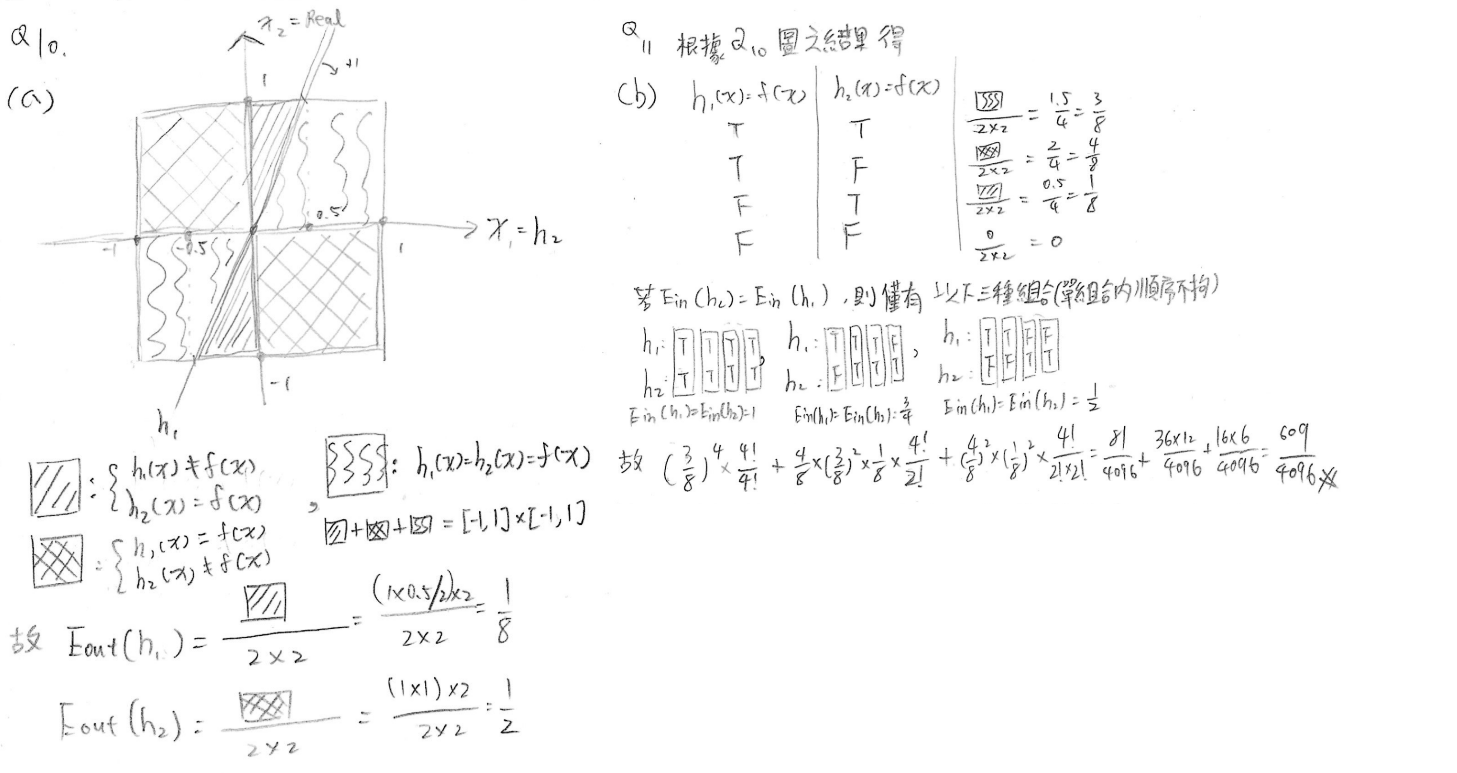 Q10.
(a)
x₂ = Real
+1
1
-1
-0.5
0.5
1
x₁ = h₂
-1
h₁
: { h₁(x) ≠ f(x)
h₂(x) = f(x) ,
: h₁(x) = h₂(x) = f(x)
: { h₁(x) = f(x)
h₂(x) ≠ f(x)
+ + = [-1,1] × [-1,1]
故 Eout(h₁) = / 2×2 = (1×0.5/2)×2 / 2×2 = 1/8
Eout(h₂) = / 2×2 = (1×1)×2 / 2×2 = 1/2
Q11 根據Q10 圖之結果得
(b) h₁(x)=f(x) | h₂(x)=f(x)
T T / 2×2 = 1.5/4 = 3/8
T F / 2×2 = 2/4 = 4/8
F T / 2×2 = 0.5/4 = 1/8
F F 0 / 2×2 = 0
若 Ein(h₂) = Ein(h₁), 則僅有以下三種組合(單組合內順序不拘)
h₁: T T T T , h₁: T T T F , h₁: T T F F
h₂: T T T T h₂: F T T T h₂: F F T T
Ein(h₁)=Ein(h₂)=1 Ein(h₁)=Ein(h₂)=3/4 Ein(h₁)=Ein(h₂)=1/2
故 (3/8)⁴ × 4!/4! + 4/8 × (3/8)² × 1/8 × 4!/2! + (4/8)² × (1/8)² × 4!/2!×2! = 81/4096 + 36×12/4096 + 16×6/4096 = 609/4096